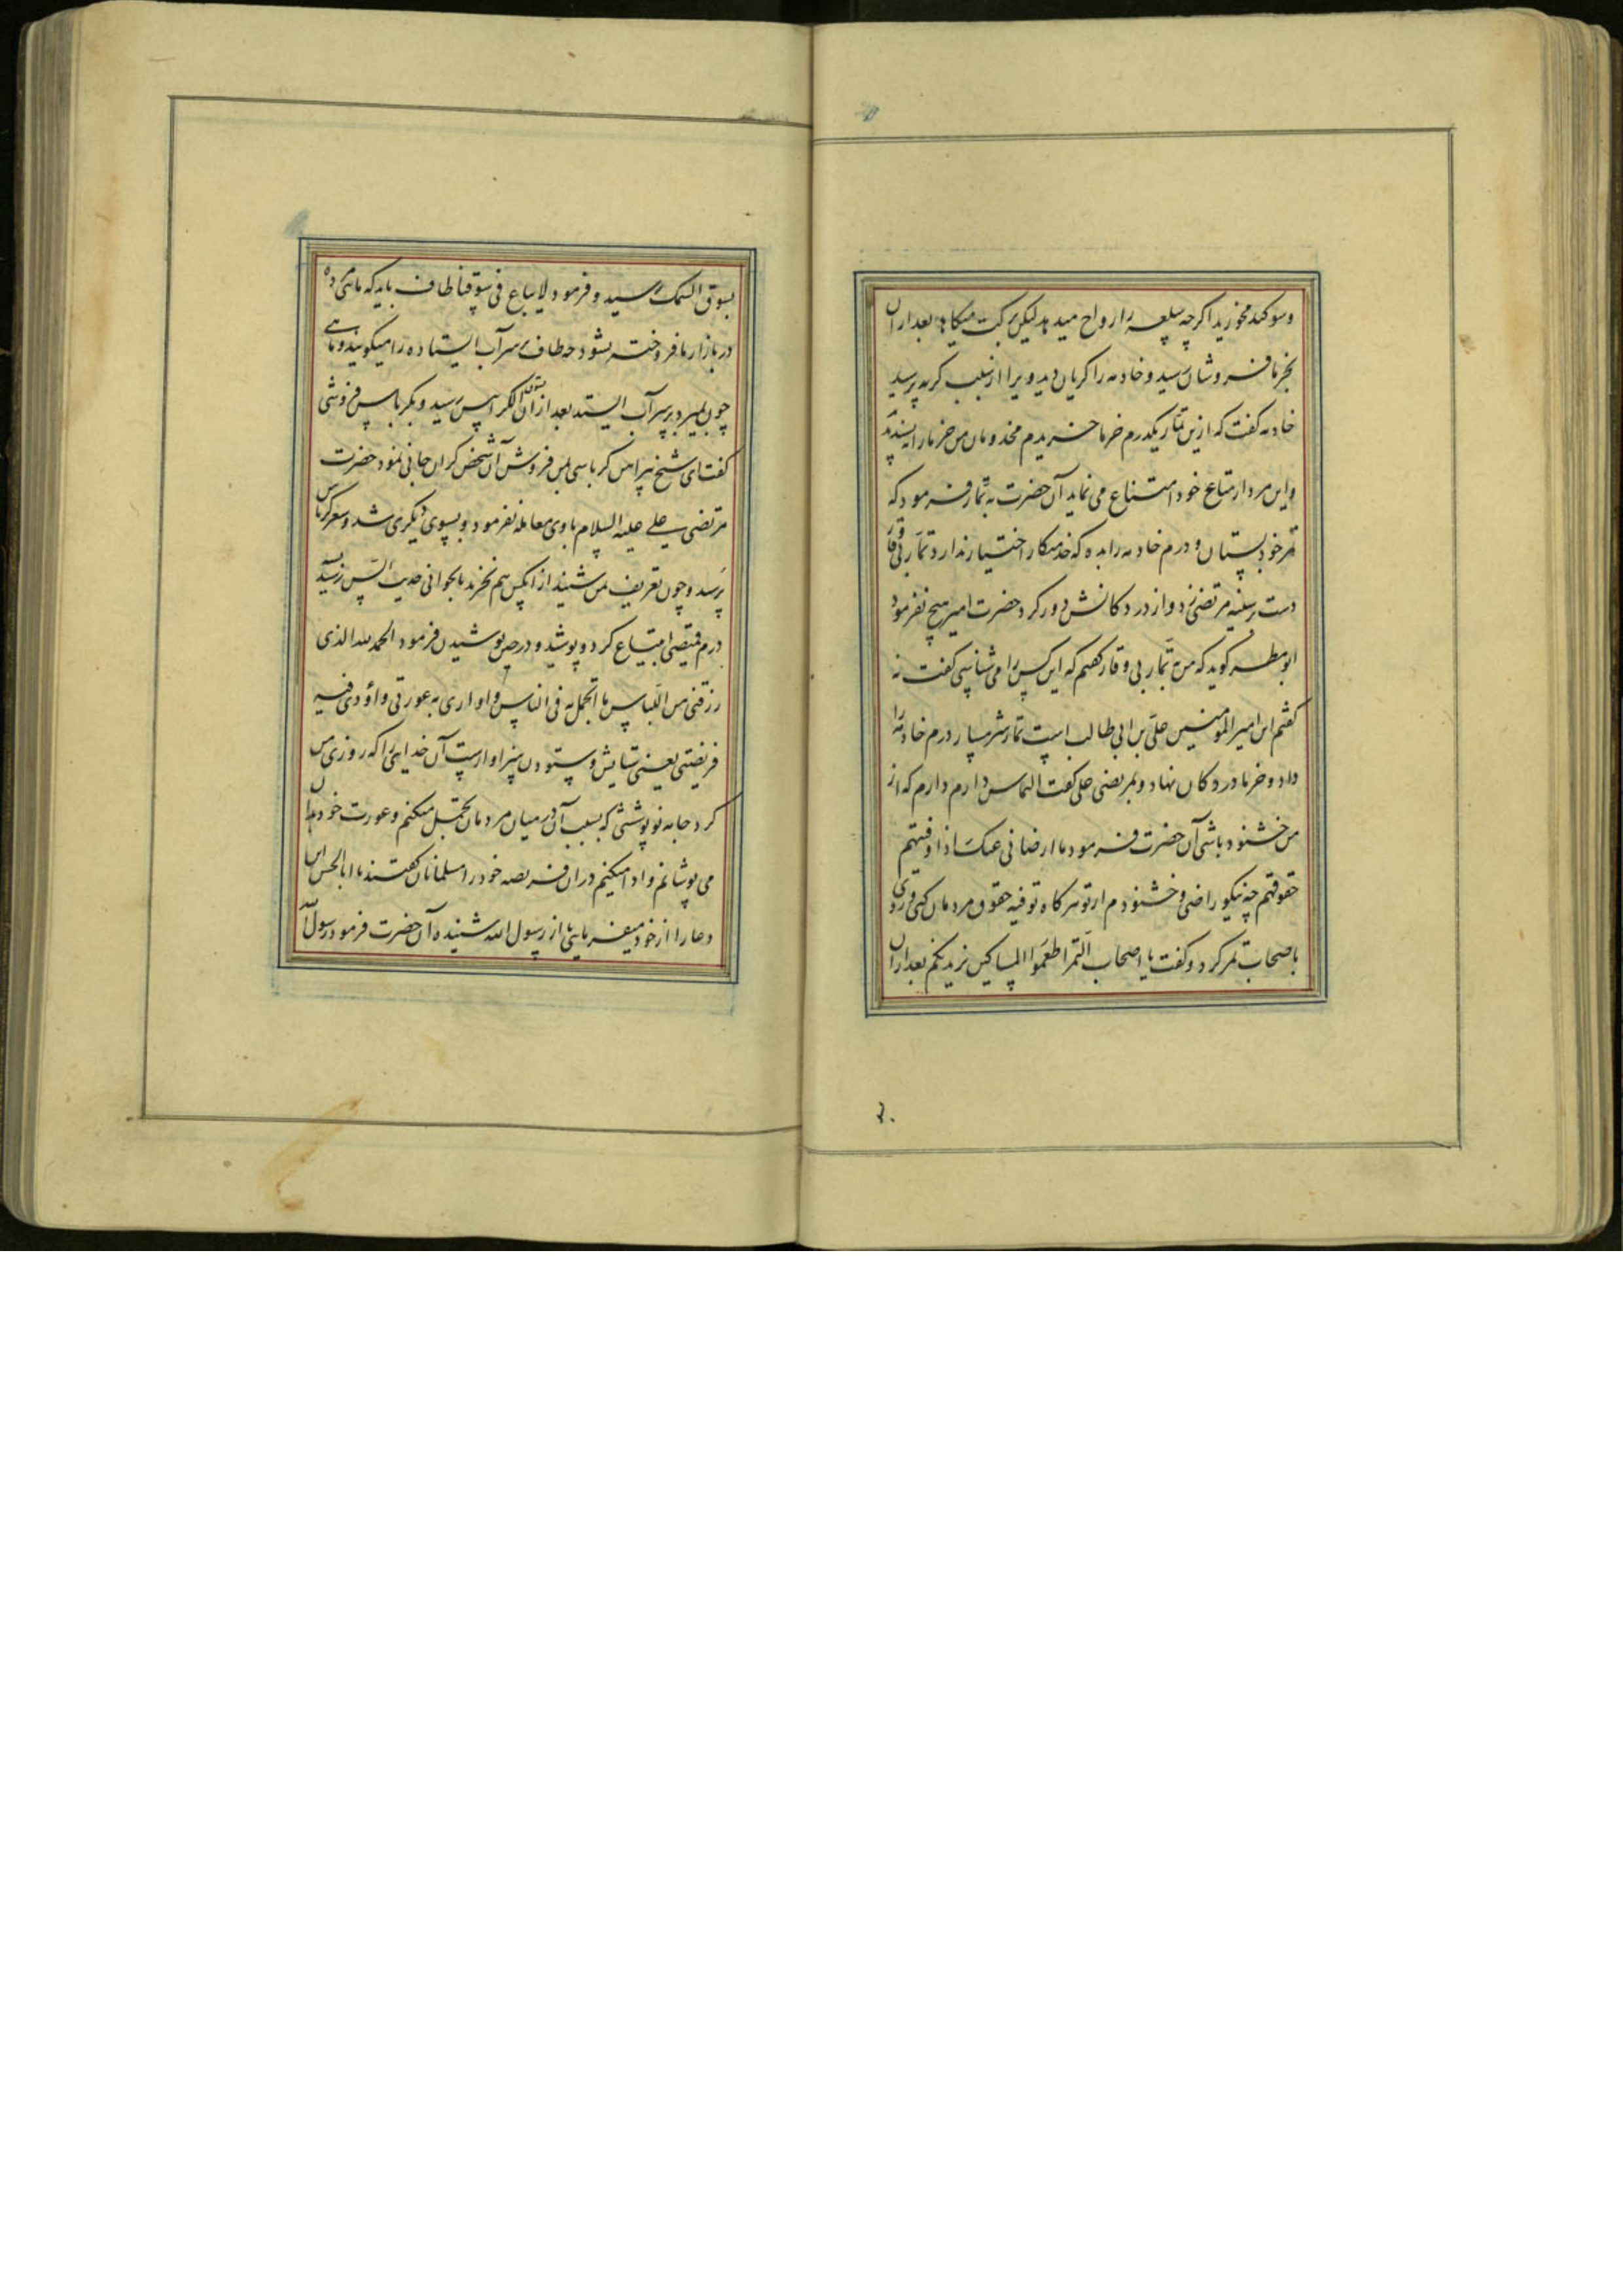 وسوکند مخورید اکرچه سلعه را رواح میدهد لیکن برکت میکاهد بعد ازان
بخرما فروشان رسید و خادمه را کریان دید ویرا از سبب کریه پرسید
خادمه کفت که ازین تمار یکدرم خرما خریدم مخدومان من خرما را نپسندید
واین مرد از متاع خود امتناع می نماید آن حضرت به تمار فرمود که
تمر خود بستان و درم خادمه را بده که خدمتکار اختیار ندارد تمار بی وقار
دست بر سینه مرتضی زد و از در دکانش دور کرد حضرت امیر هیچ نفرمود
ابو مطر کوید که من به تمار بی وقار کفتم که این کس را می شناسی کفت نه
کفتم این امیر المومنین علی بن ابی طالب است تمار شرمسار درم خادمه را
داد و خرما در دکان نهاد و بمرتضی علی کفت التماس دارم دارم که از
من خشنود باشی آن حضرت فرمود ما ارضانی عنک اذا وفیتهم
حقوقهم چه نیکو راضی و خشنودم از تو هرکاه توفیه حقوق مردمان کنی و روی
باصحاب تمر کرد و کفت یا اصحاب التمر اطعموا المساکین یزید بکم بعد ازان
۲۰
بسوق السمک رسید و فرمود لا یباع فی سوقنا طاف باید که ماهی مرده
در بازار ما فروخته نشود چه طاف بر سر آب ایستاده را میکویند و ماهی
چون بمیرد بر سر آب ایستد بعد ازان بسوق الکرابیس رسید و بکرباس فروشی
کفت ای شیخ پیراهن کرباسی بمن فروش آن شخص کران جانی نمود حضرت
مرتضی علی علیه السلام با وی معامله نفرمود و بسوی دیکری شد و سعر کرباس
پرسید و چون تعریف من شنید از آنکس هم نخرید با بجوانی حدیث السن رسید بسه
درم قمیصی ابتیاع کرد و پوشید و در حین پوشیدن فرمود الحمد لله الذی
رزقنی من اللباس ما اتجمل به فی الناس و اواری به عورتی واؤدی فیه
فریضتی یعنی ستایش و ستودن سزاوارست آن خدایی را که روزی من
کرد جامه نو پوششی که بسبب آن در میان مردمان تجمل میکنم و عورت خود بدان
می پوشانم و ادا میکنم دران فریضه خود را مسلمانان کفتند یا ابا الحسن این
دعا را از خود میفرمایی یا از رسول الله شنیده آن حضرت فرمود رسول الله